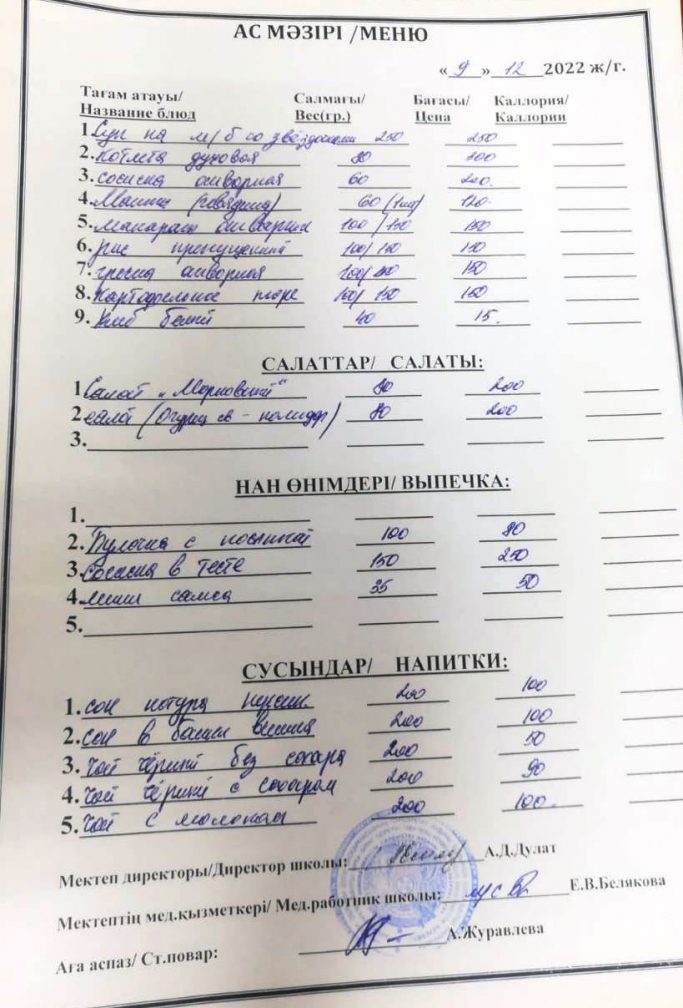 АС МӘЗІРІ /МЕНЮ
« 9 » 12 2022 ж/г.
Тағам атауы/ Салмағы/ Бағасы/ Каллория/
Название блюд Вес(гр.) Цена Каллории
1. Суп на м/б со звёздочками 250 250
2. Котлета духовая 80 300
3. сосиска отворная 60 200.
4. (говядина) 60 (1шт) 120.
5. макароны отварные 100/150 150
6. рис 100/150 150
7. гречка отворная 150
8. Картофельное пюре 100/150 150
9. Хлеб белый 40 15.
САЛАТТАР/ САЛАТЫ:
1 Салат „Морковный“ 80 200
2 салат (Огурец св - помидор) 80 200
3.
НАН ӨНІМДЕРІ/ ВЫПЕЧКА:
1.
2. Булочка с посыпкой 100 80
3. Сосиска в тесте 150 250
4. мини самса 35 50
5.
СУСЫНДАР/ НАПИТКИ:
1. сок 200 100
2. Сок в банке вишня 200 100
3. Чай чёрный без сахара 200 50
4. Чай чёрный с сахаром 200 90
5. Чай с молоком 200 100.
Мектеп директоры/Директор школы: А.Д.Дулат
Мектептің мед.қызметкері/ Мед.работник школы: Е.В.Белякова
Аға аспаз/ Ст.повар: А.Журавлева